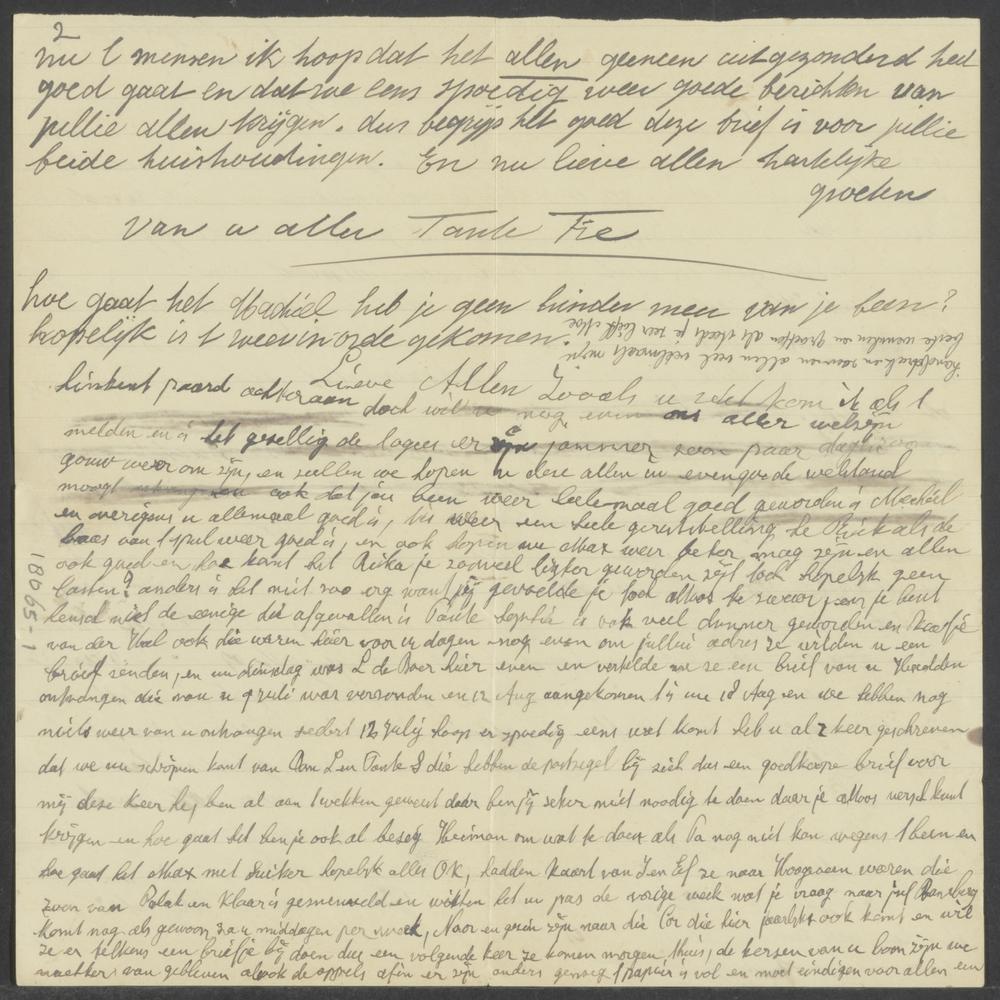 2
nu l mensen ik hoop dat het allen geneen uitgezonderd heel
goed gaat en dat we eens spoedig weer goede berichten van
jullie allen krijgen. dus begrijp het goed deze brief is voor jullie
beide huishoudingen. En nu lieve allen hartelijke
groeten
van u aller Tante Fie
hoe gaat het Machiel heb je geen hinder meer van je been?
hopelijk is 't weer in orde gekomen.
handdrukken zoenen allen veel veelmaals mijn
beste wenschen en groeten als steeds je zeer liefh
Lieve Allen Zooals u ziet kom ik als 't
hinkend paard achteraan doch wil u nog even ons aller welzijn
melden en is het gezellig de logees er zijn jammer zoon paar dagen zoo
gouw weer om zijn, en zullen we hopen u deze allen in evengoede welstand
moogt ook dat jou been weer heelemaal goed geworden is Machiel
en overigens u allemaal goed is, tis weer een heele geruststelling de als de
baas van 't spul weer goed is, en ook hopen we Max weer beter mag zijn en allen
ook goed en hoe komt het Rika je zooveel lichter geworden zijt toch hopelijk geen
lasten? anders is het niet zoo erg want jij gevoelde je toch altoos te zwaar, en je bent
heusch niet de eenige die afgevallen is Tante Sophie is ook veel dunner geworden en
van der Hal ook die waren hier voor 14 dagen nog even om jullie adres ze wilden u een
brief zenden, en nu dinsdag was L de Boer hier even en vertelde me ze een brief van u Hadden
ontvangen die van u 9 Juli was verzonden en 12 Aug aangekomen 't is nu 18 Aug en we hebben nog
niets weer van u ontvangen sedert 12 July hoop er spoedig eens wat komt heb u al 2 keer geschreven
dat we nu schrijven komt van Oom L en Tante S die hebben de postzegel bij zich dus een goedkoope brief voor
mij deze keer, hij ben al aan 't wekken geweest daar ben jij zeker niet noodig te doen daar je altoos versch kunt
krijgen en hoe gaat het ben je ook al bezig Heiman om wat te doen als Pa nog niet kan wegens 't been en
hoe gaat het Max met Suiker hopelijk alles OK, hadden kaart van J en Ef ze naar Hoogeveen waren die
zoon van Polak en Klaar is gesneuveld en wisten het nu pas de vorige week wat je vraag naar juf
komt nog als gewoon 2 a 3 middagen per week, Noor en gein zijn naar die Cor die hier jaarlyks ook komt en wil
ze er telkens een briefje bij doen dus een volgende keer ze komen morgen thuis, de kersen van u boom zijn we
maekker van gebleven alook de appels afin er zijn anders genoeg 't papier is vol en moet eindigen voor allen een
18065-1